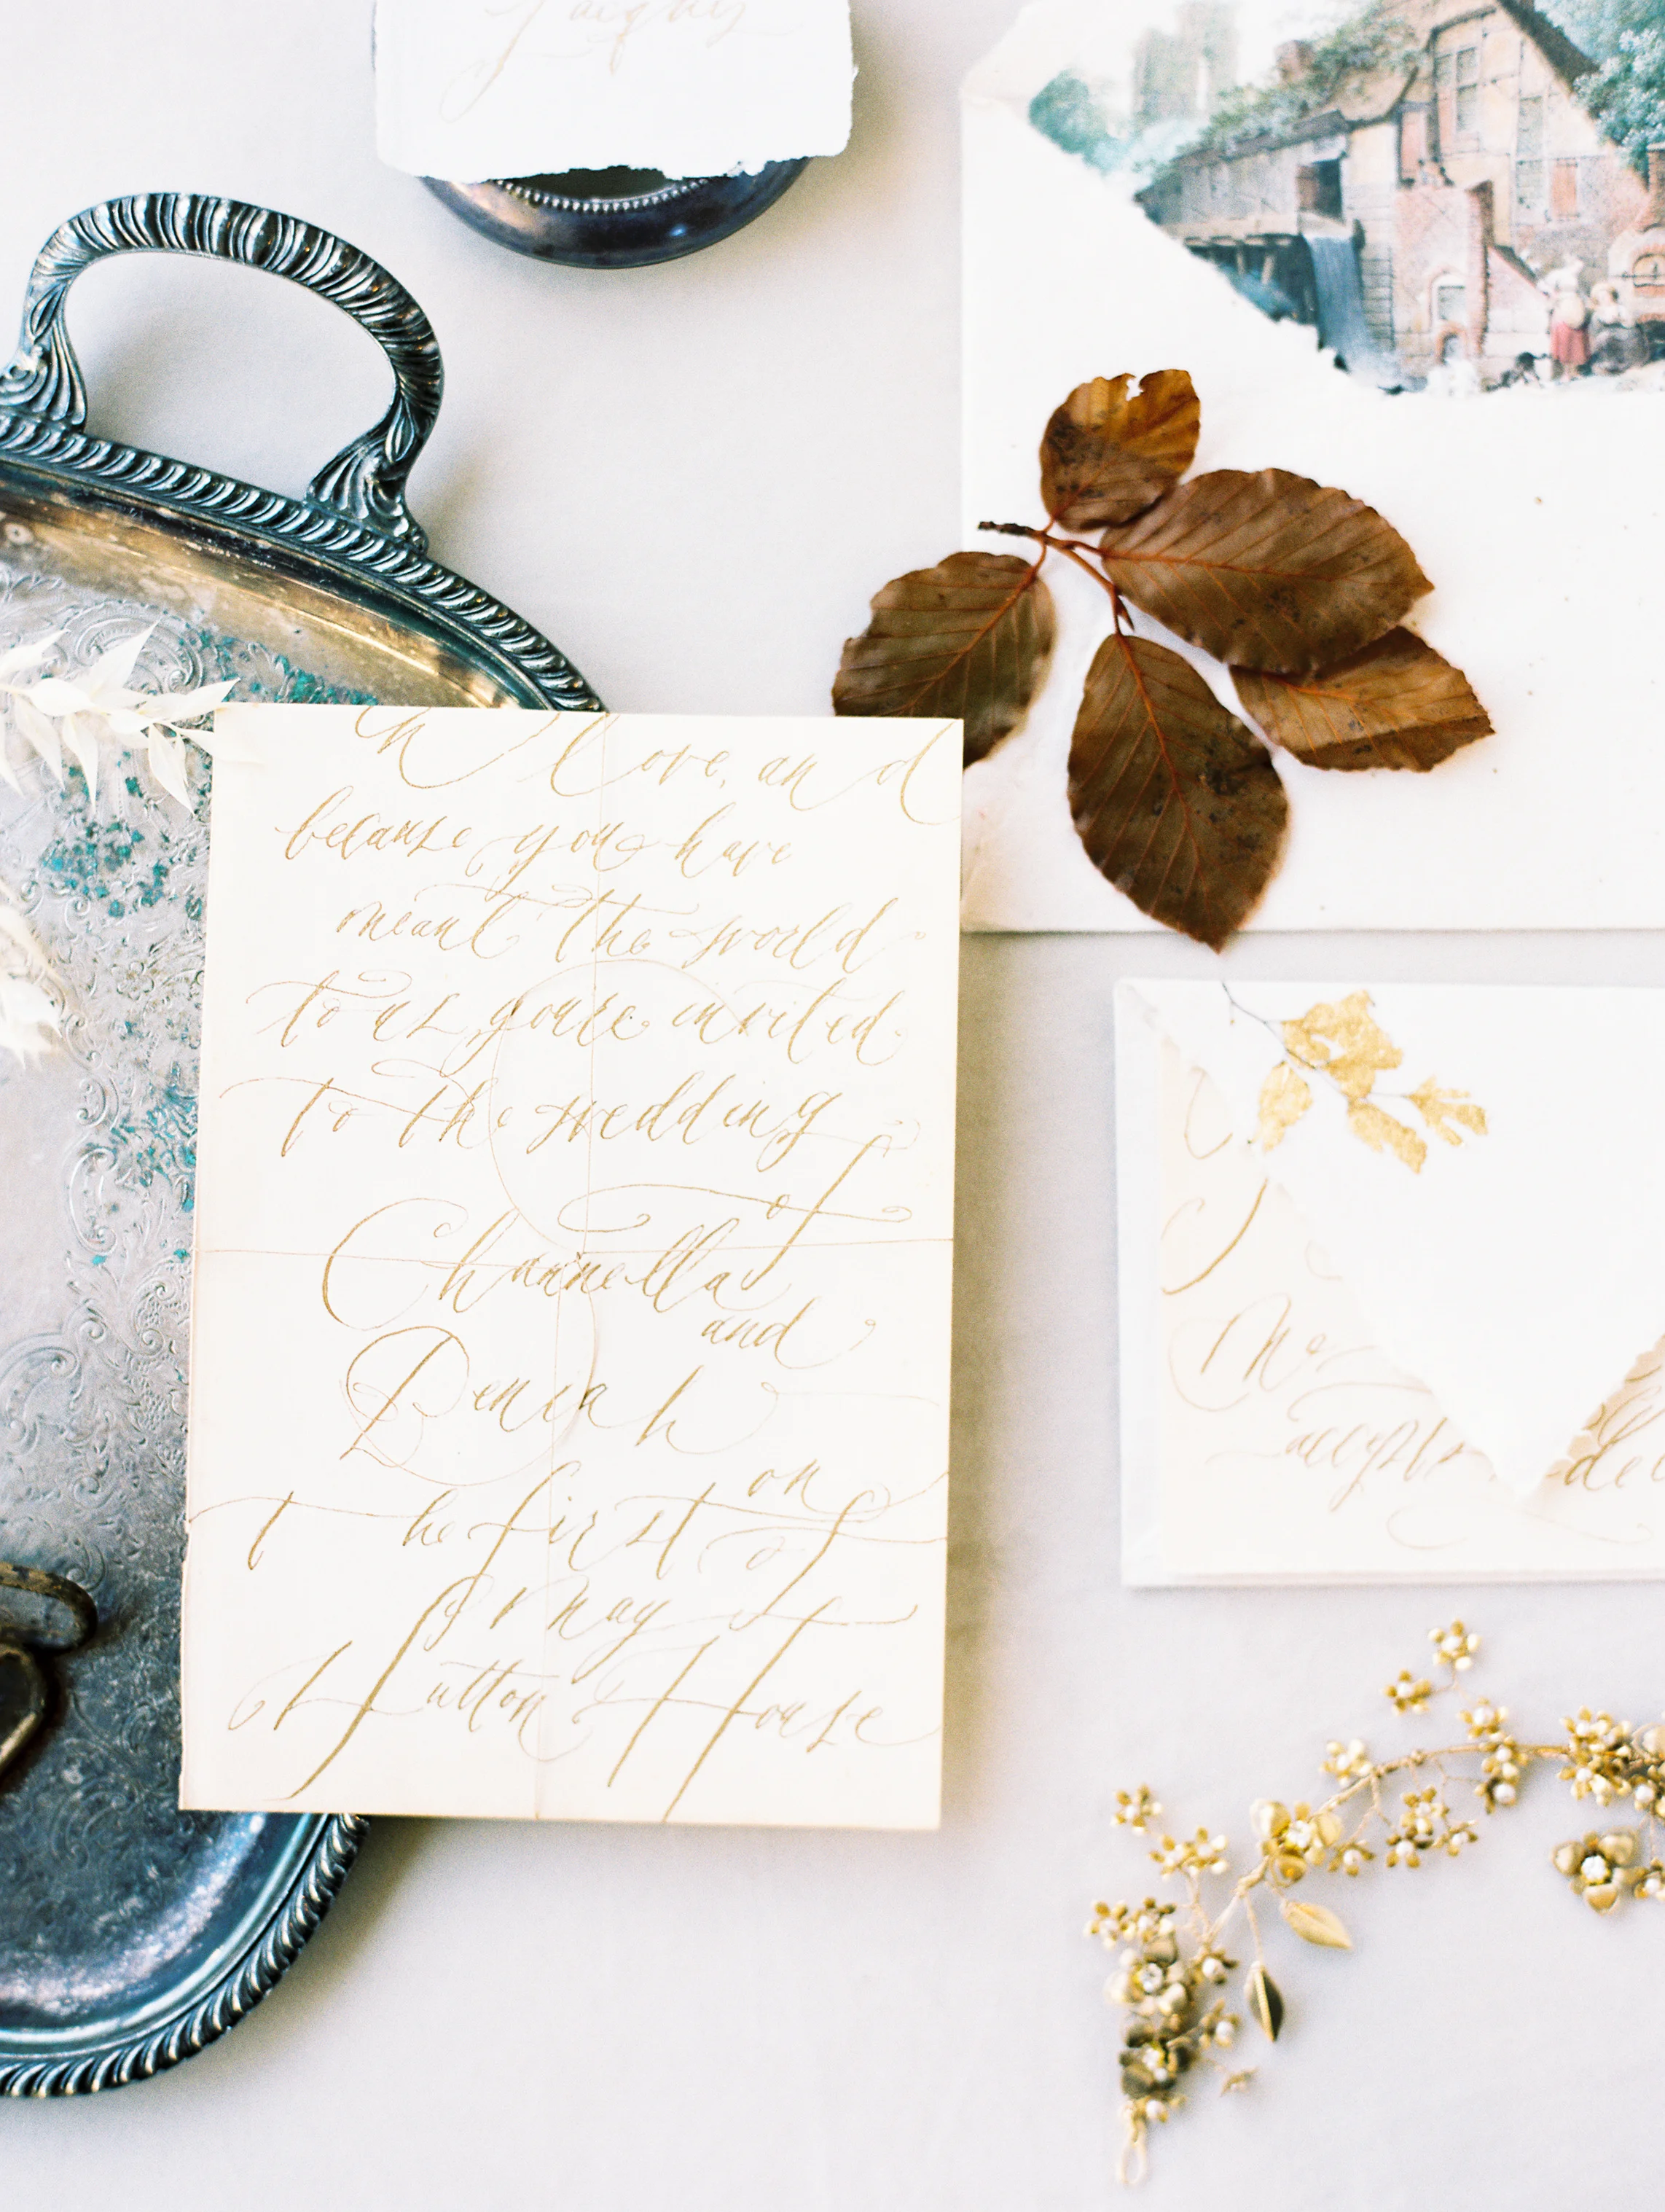 In love, and
because you have
meant the world
to us you're invited
to the wedding
of
Channella
and
Beniah
on
the first of
May
Hutton House
accepts